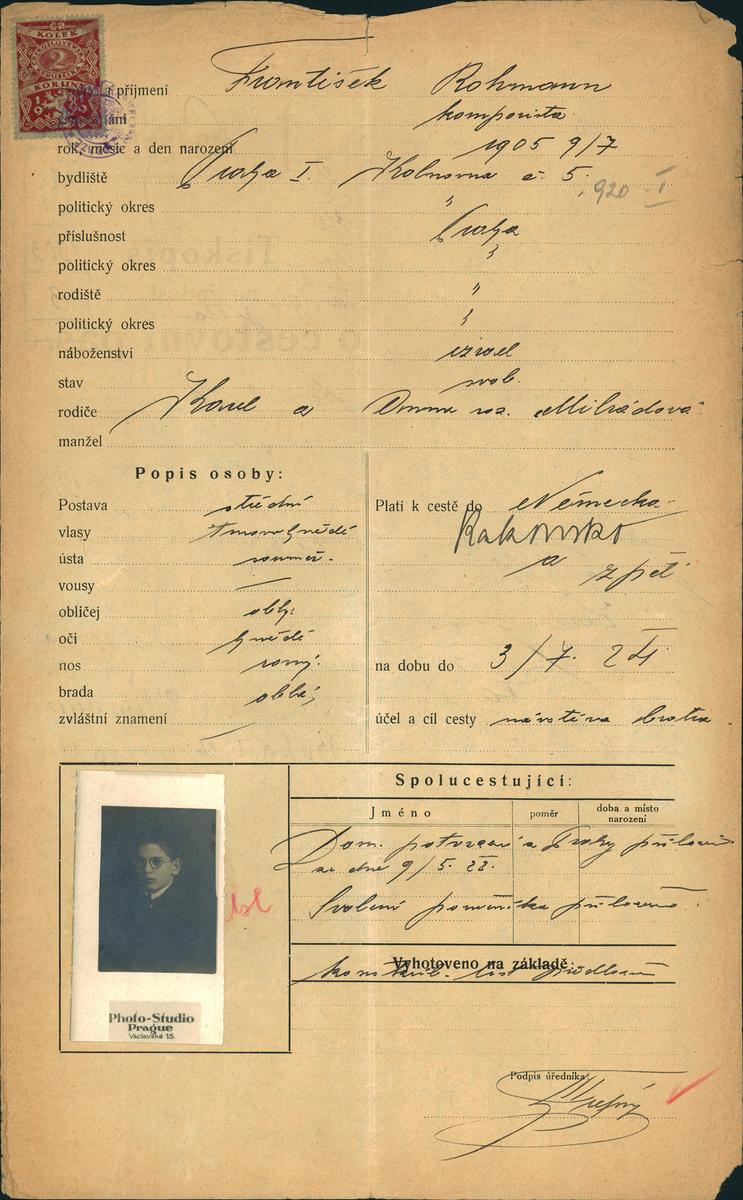 ČR
KOLEK
ČESKOSLOVENSKÁ
2
KORUNY
a příjmení František Rohmann
komponista
rok, měsíc a den narození 1905 9/7
bydliště Praha I. Kolkovna č. 5. 920-I
politický okres "
příslušnost Praha
politický okres "
rodiště "
politický okres "
náboženství izrael
stav svob.
rodiče Karel a Anna roz.
manžel
Popis osoby:
Postava střední
vlasy tmavohnědé
ústa souměr.
vousy —
obličej oblý
oči hnědé
nos rovný
brada oblá
zvláštní znamení —
Platí k cestě do Německa
Rakousko
a zpět
na dobu do 3/7. 24
účel a cíl cesty návštěva bratra
Spolucestující:
Jméno poměr doba a místo narození
Dom. potvrzení z Prahy přiloženo
ze dne 9/5. 22.
Svolení poručníka přiloženo.
Vyhotoveno na základě:
list předložen
Photo-Studio
Prague
Václavské 15.
Podpis úředníka: